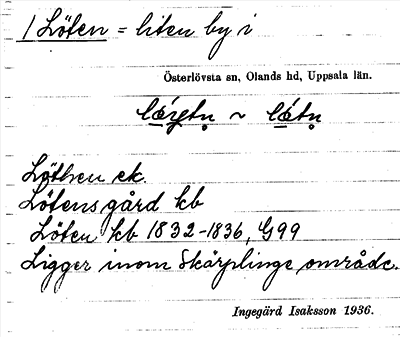 1 Löten = liten by i
Österlövsta sn, Olands hd, Uppsala län.
~
Löthen ek.
Lötensgård kb
Löten kb 1832-1836, G99
Ligger inom Skärplinge område.
Ingegärd Isaksson 1936.